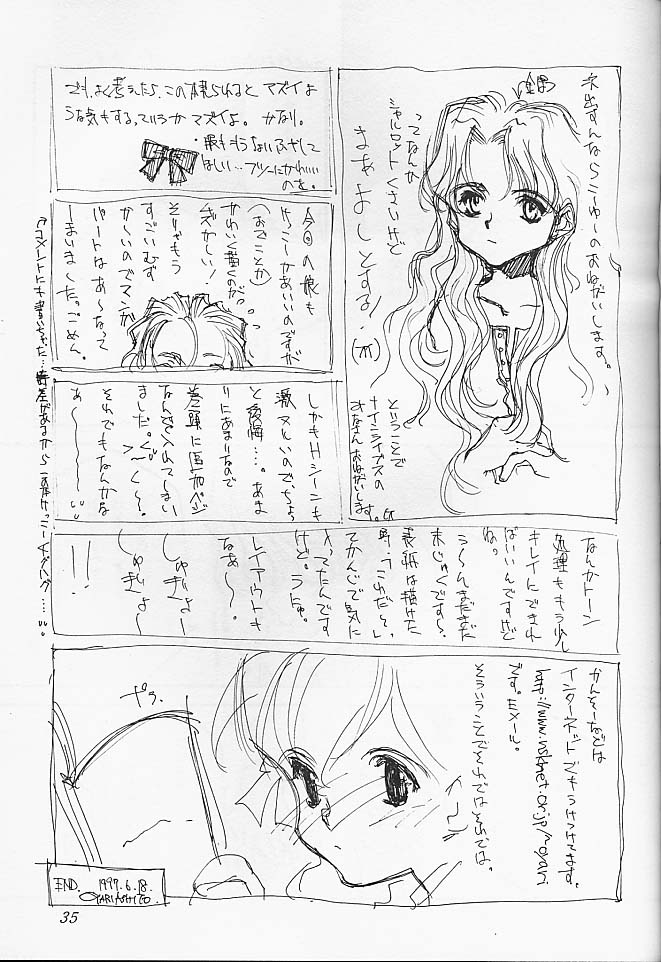 ネ出すんならこーゆーのおねがいします。
ってなんか
シャルロットくさいけど
まぁよしとする!
ということで
ナインライブスの
みなさんおねがいします。
でも、よく考えたら、この
られるとマズイよ
うな気もする。ていうかマズイよ。かなり。
ほしい…フツーにかわいい
のを。
今回の娘も
けっこーかあいいのですが
(おでことか)
かわいく描くのが
ムズかしい!
そりゃもう
すごいむず
かしいのでマンガ
パートはあーなって
しまいました。ごめん。
しかもHシーンも
激ヌルいので、ちょっ
と後悔…。あま
りにあまりなので
巻頭に追加ページ
なんぞ入れてしまい
ました。ぐし
それでもなんかな
あ〜〜
なんかトーン
処理ももう少し
キレイにできれ
ばいいんですけど
ね。
う〜んまだまだ
未じゅくです〜。
表紙は描けた
時、「これだ!」
てかんじで気に
入ってたんです
けど。うにゅ。
レイアウトも
なぁ〜。
しゅぎょー
しゅぎょ〜
!!
かんそーなどは
インターネットでもうけつけてます。
http://www.nsknet.or.jp/~oyari
です。Eメール。
そういうことでそれではそれでは。
END. 1997.6.18.
OYARI ASHITO.
35